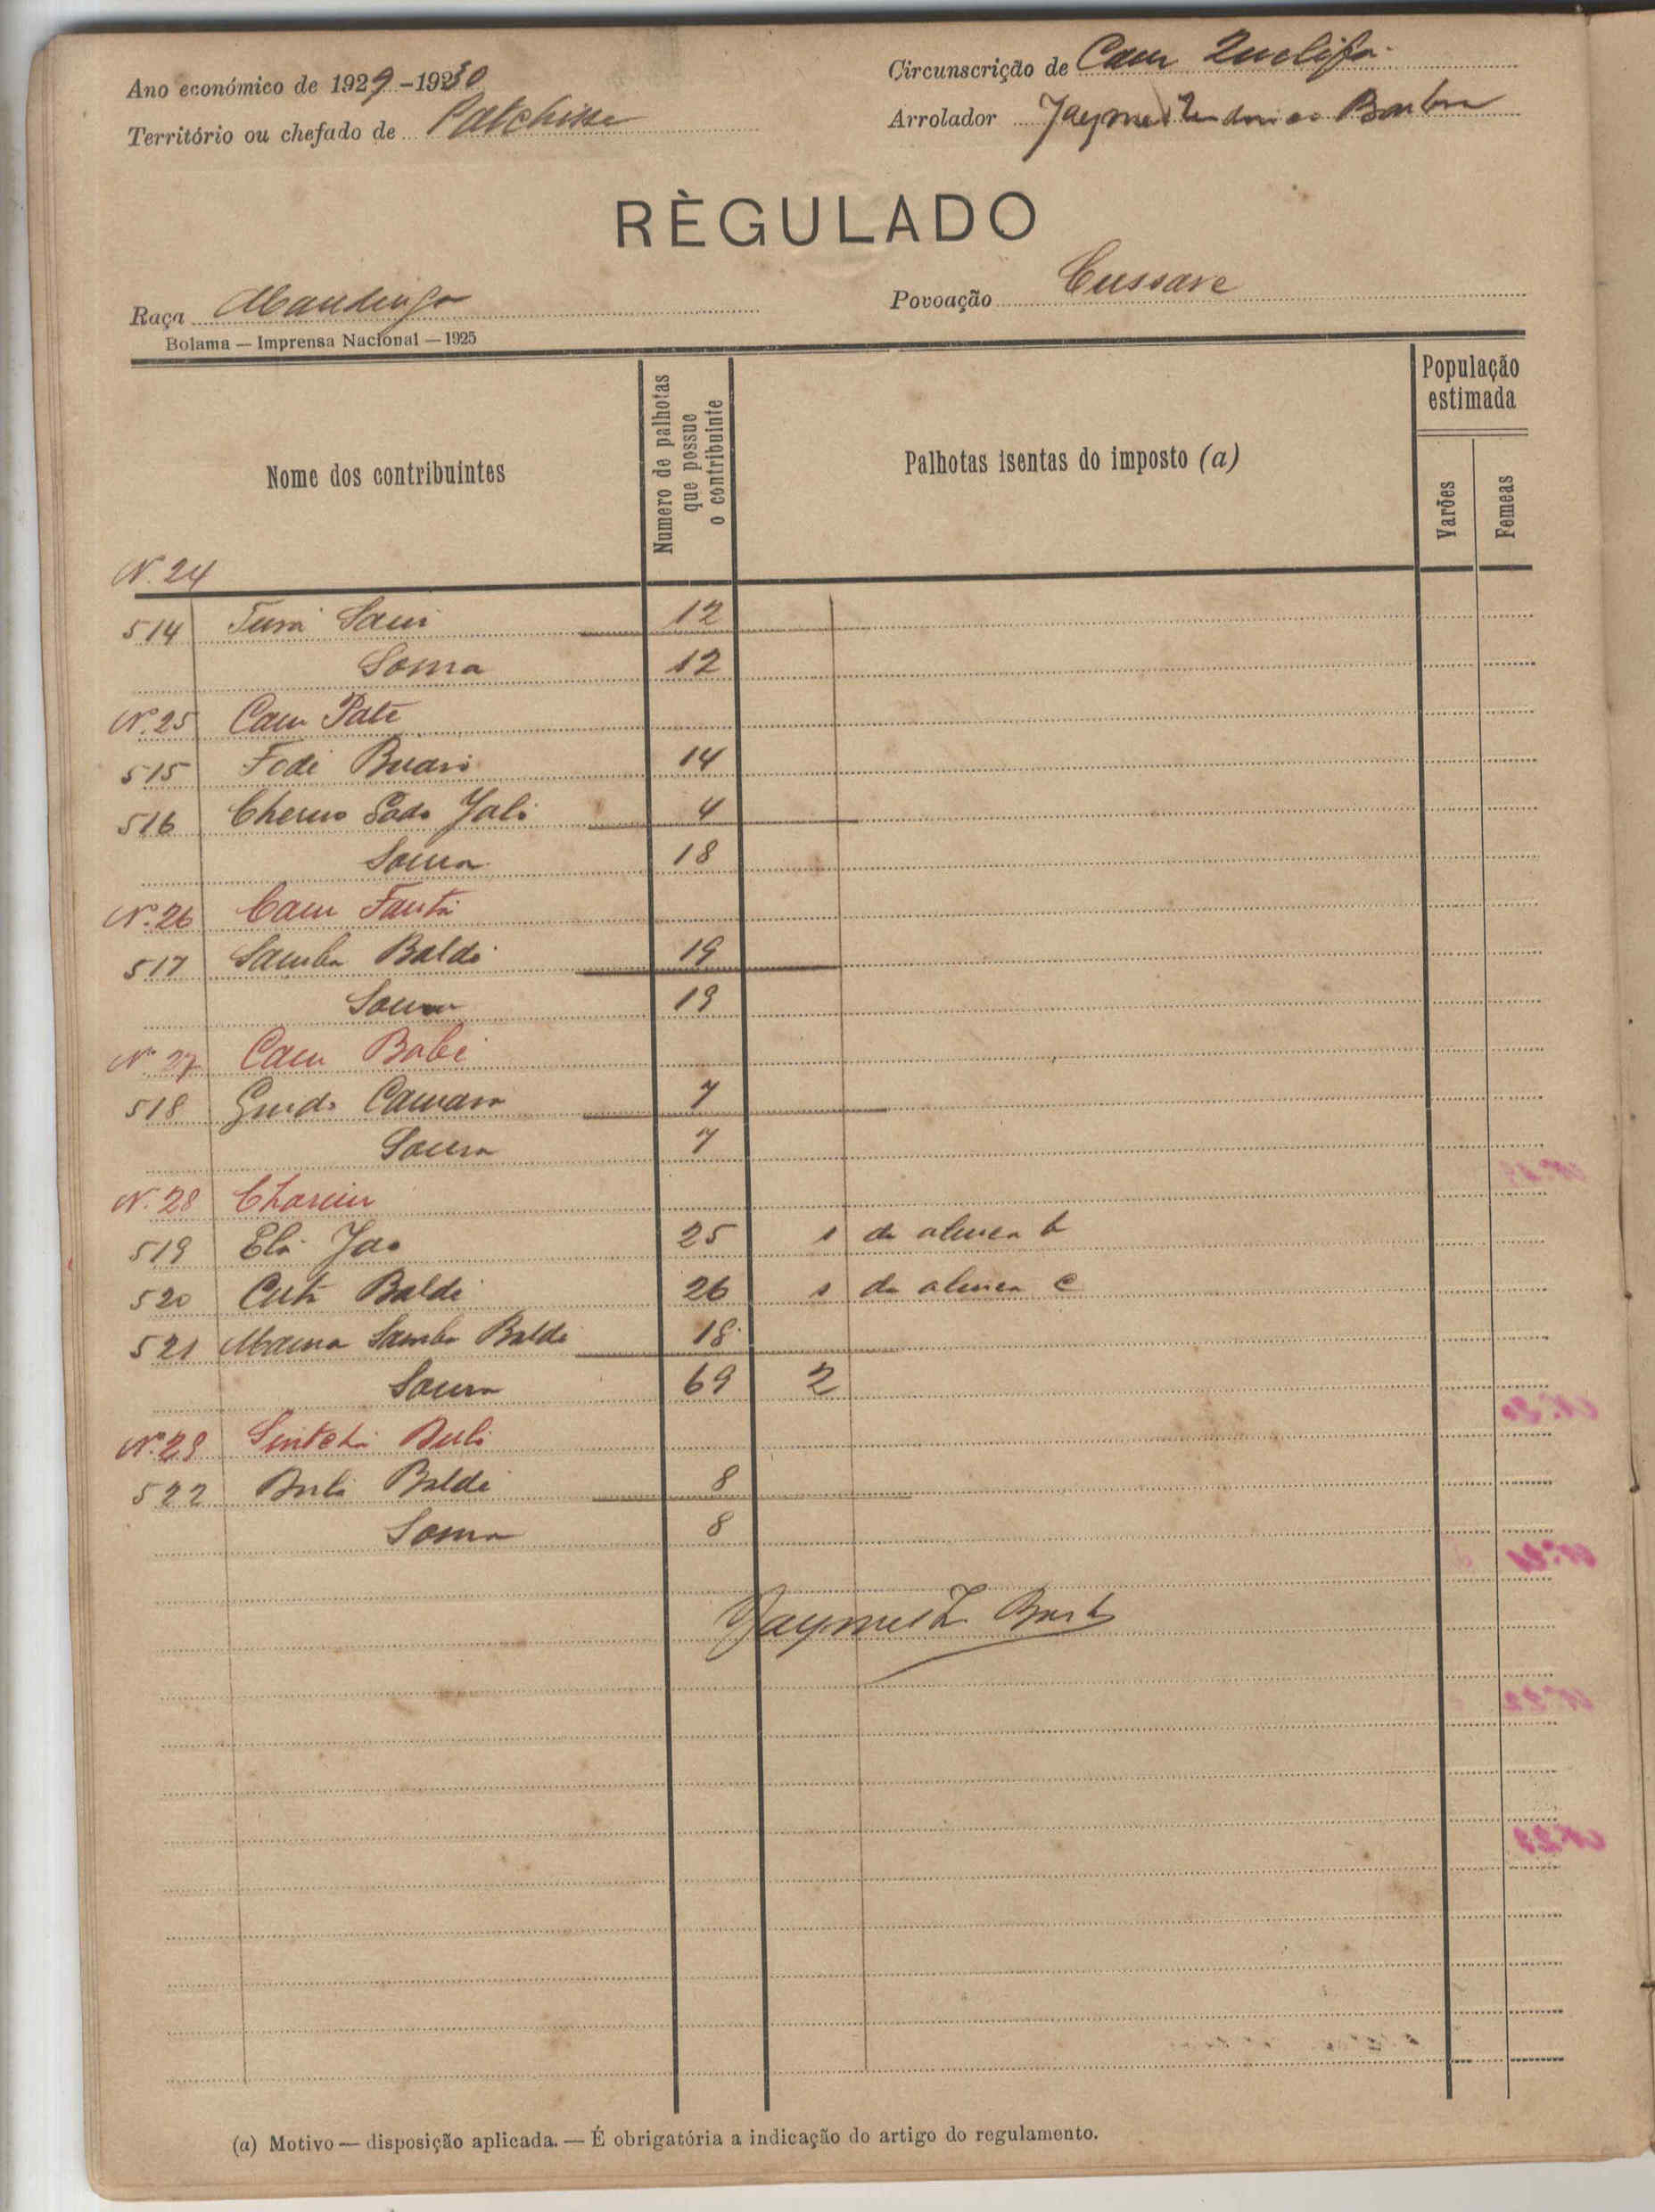 Ano económico de 1929-1930
Circunscrição de Cam Quelifá
Território ou chefado de Patchisse
Arrolador Jayme Barbosa
RÈGULADO
Raça Mandinga
Povoação Cussare
Bolama — Imprensa Nacional — 1925
Nome dos contribuintes
Numero de palhotas que possue o contribuinte
Palhotas isentas do imposto (a)
População estimada
Varões
Femeas
N.º 24
514 Sani 12
Soma 12
Nº 25 Cam Paté
515 Fodé 14
516 Cherno Sado Jaló 4
Soma 18
Nº 26 Cam Fantá
517 Samba Baldé 19
Soma 19
Nº 27 Cam Babé
518 Camara 7
Soma 7
Nº 28
519 25 1 da alinea b
520 Baldé 26 1 da alinea c
521 Mama Samba Baldé 18
Soma 69 2
Nº 29
522 Baldé 8
Soma 8
(a) Motivo — disposição aplicada. — É obrigatória a indicação do artigo do regulamento.